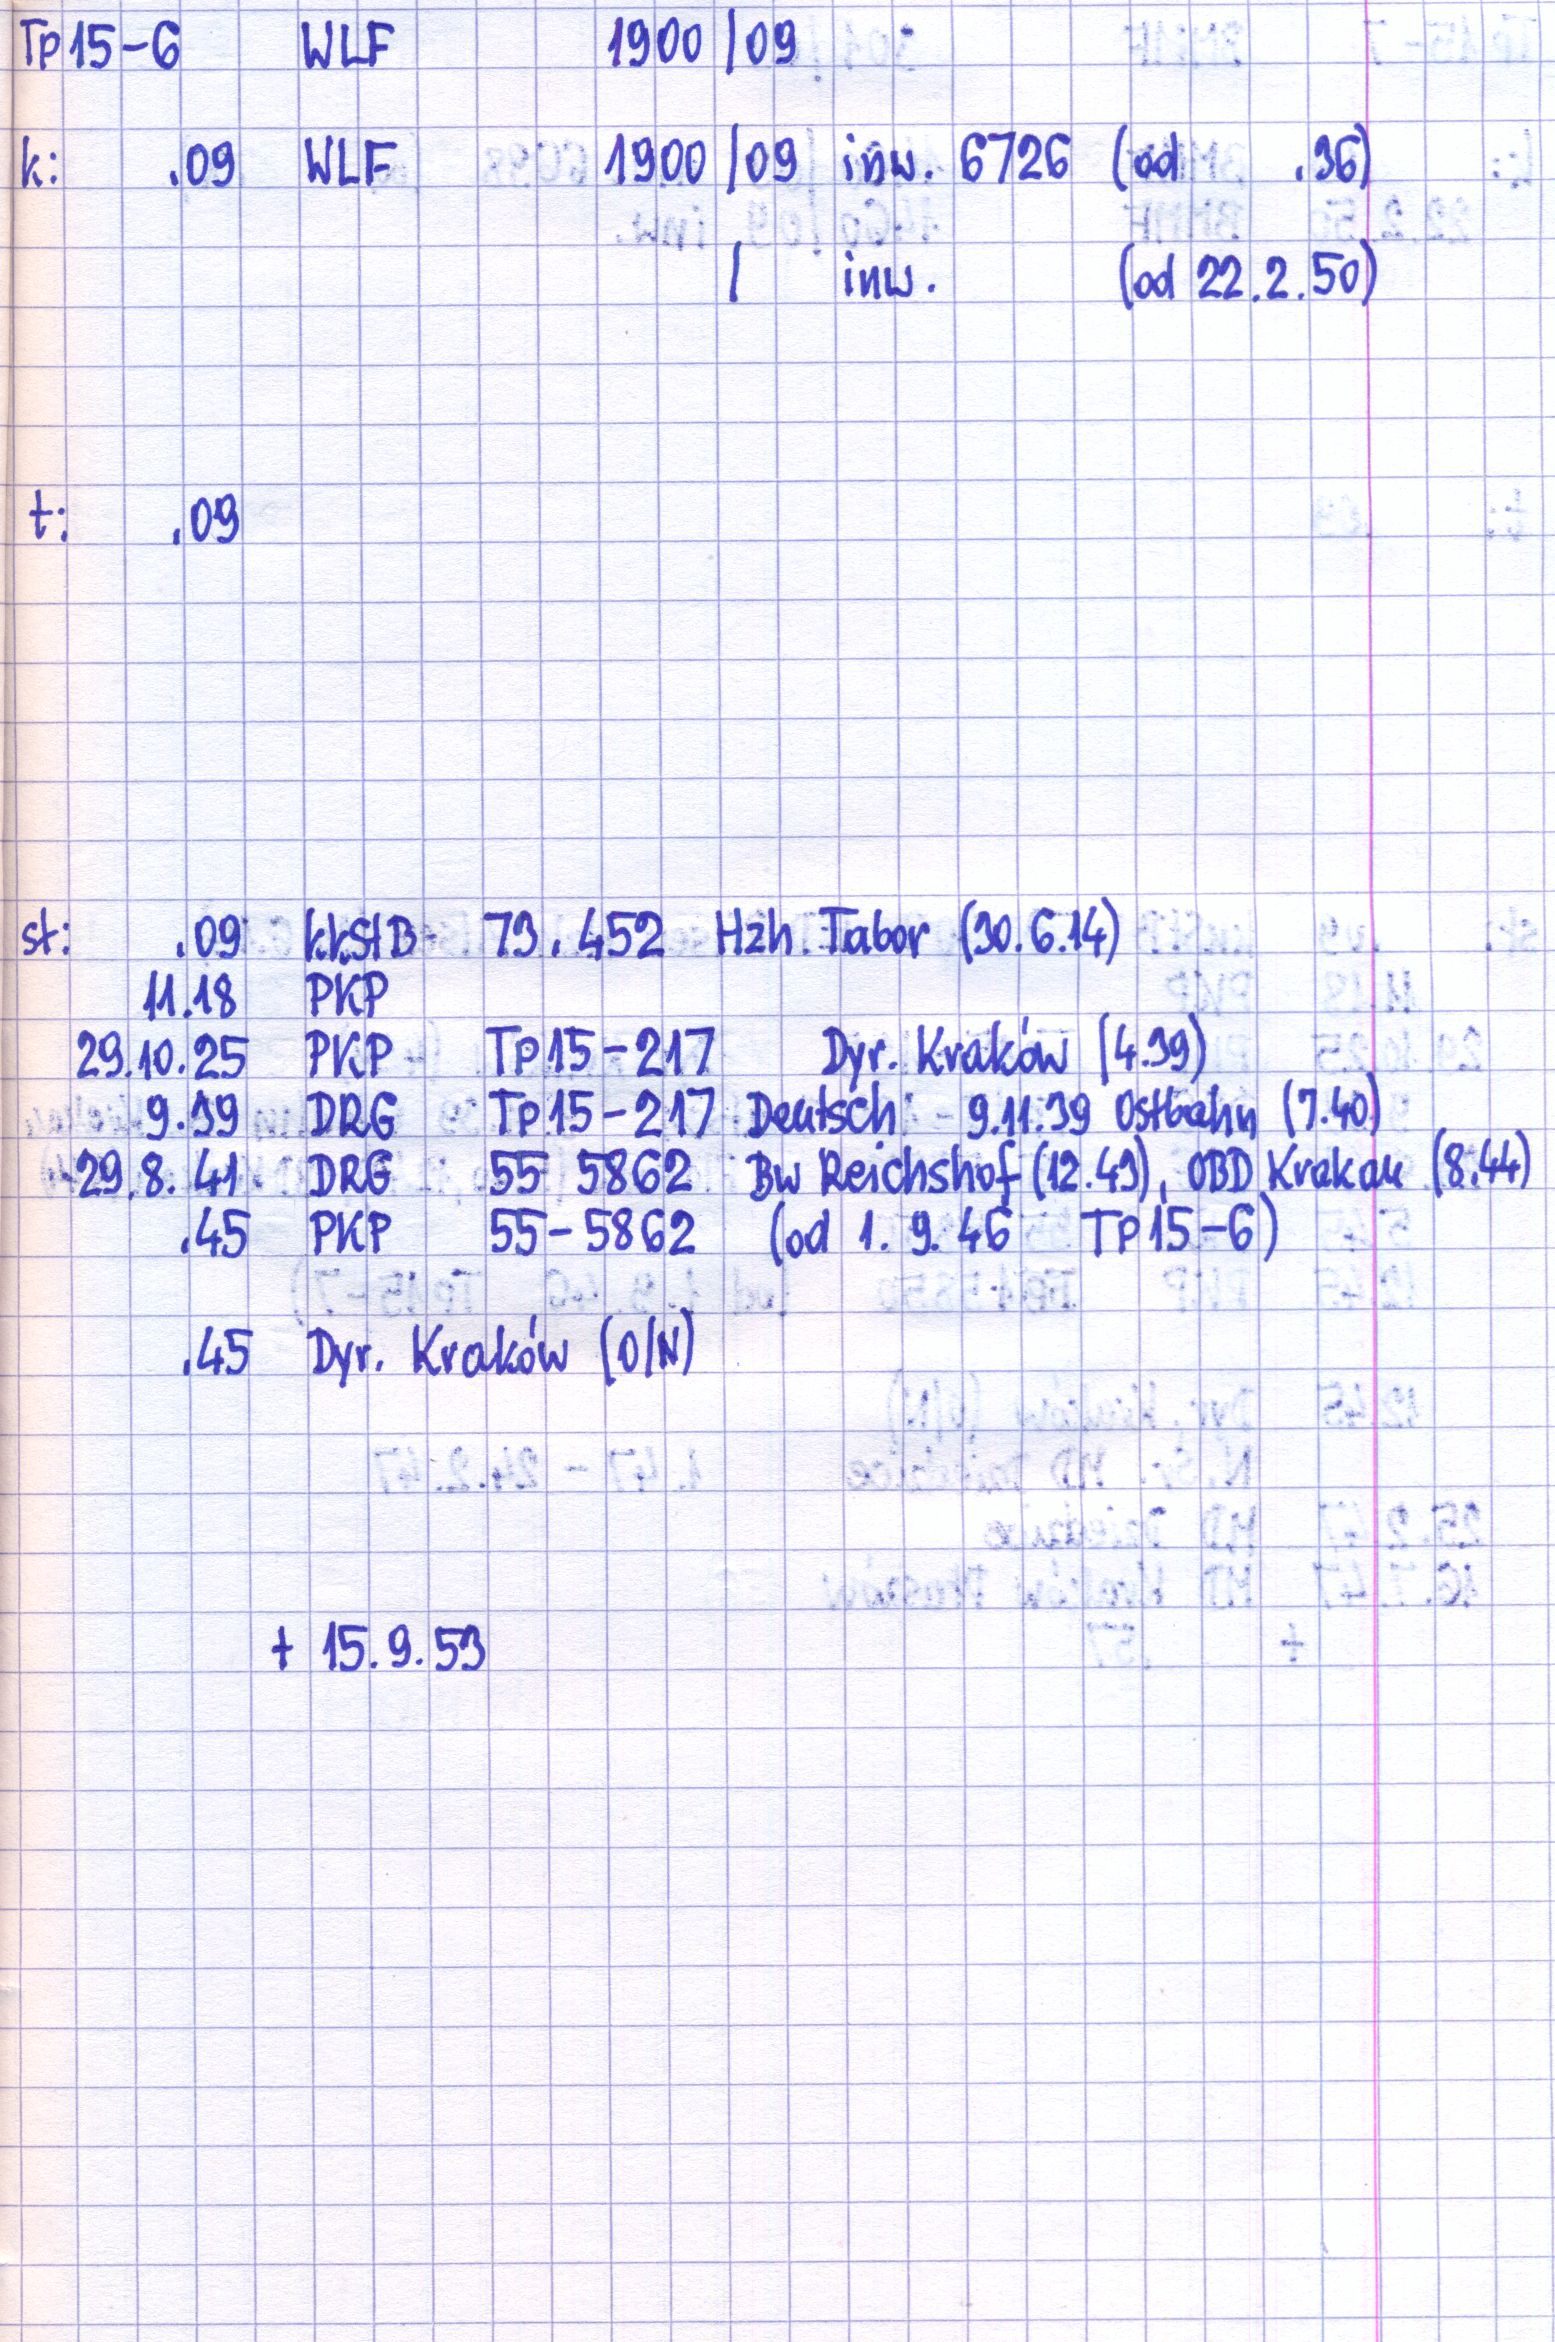 Tp15-6 WLF 1900/09
k: .09 WLF 1900/09 inw. 6726 (od .36)
/ inw. (od 22.2.50)
t: .09
st: .09 kkStB 73.452 Hzh. Tabor (30.6.14)
11.18 PKP
29.10.25 PKP Tp15-217 Dyr. Kraków (4.39)
9.39 DRG Tp15-217 Deutsch - 9.11.39 Ostbahn (7.40)
29.8.41 DRG 55 5862 Bw Reichshof (12.43), OBD Krakau (8.44)
.45 PKP 55-5862 (od 1.9.46 Tp15-6)
.45 Dyr. Kraków (O/N)
+ 15.9.53